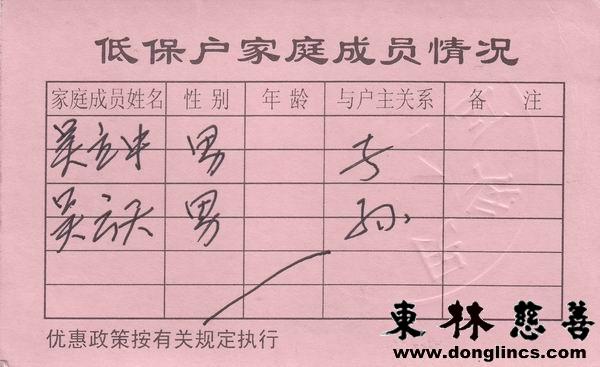 低保户家庭成员情况
家庭成员姓名 性别 年龄 与户主关系 备注
吴 男
吴 男 孙
优惠政策按有关规定执行
東林慈善
www.donglincs.com